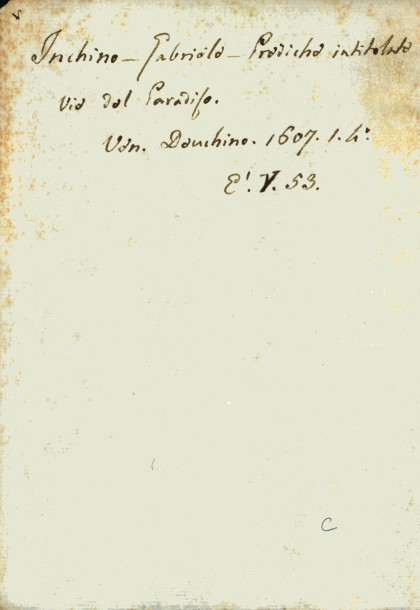 Inchino - Gabriele - Prediche intitolate
vie del Paradiso.
Ven. Deuchino. 1607. 1. 4º.
E'. V. 53.
C